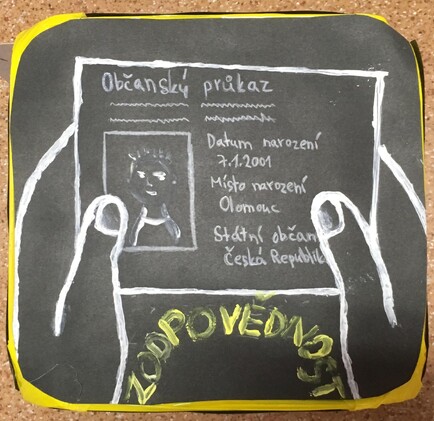 Občanský průkaz
Datum narození
7.1.2001
Místo narození
Olomouc
Státní občan
Česká Republik
ZODPOVĚDNOST